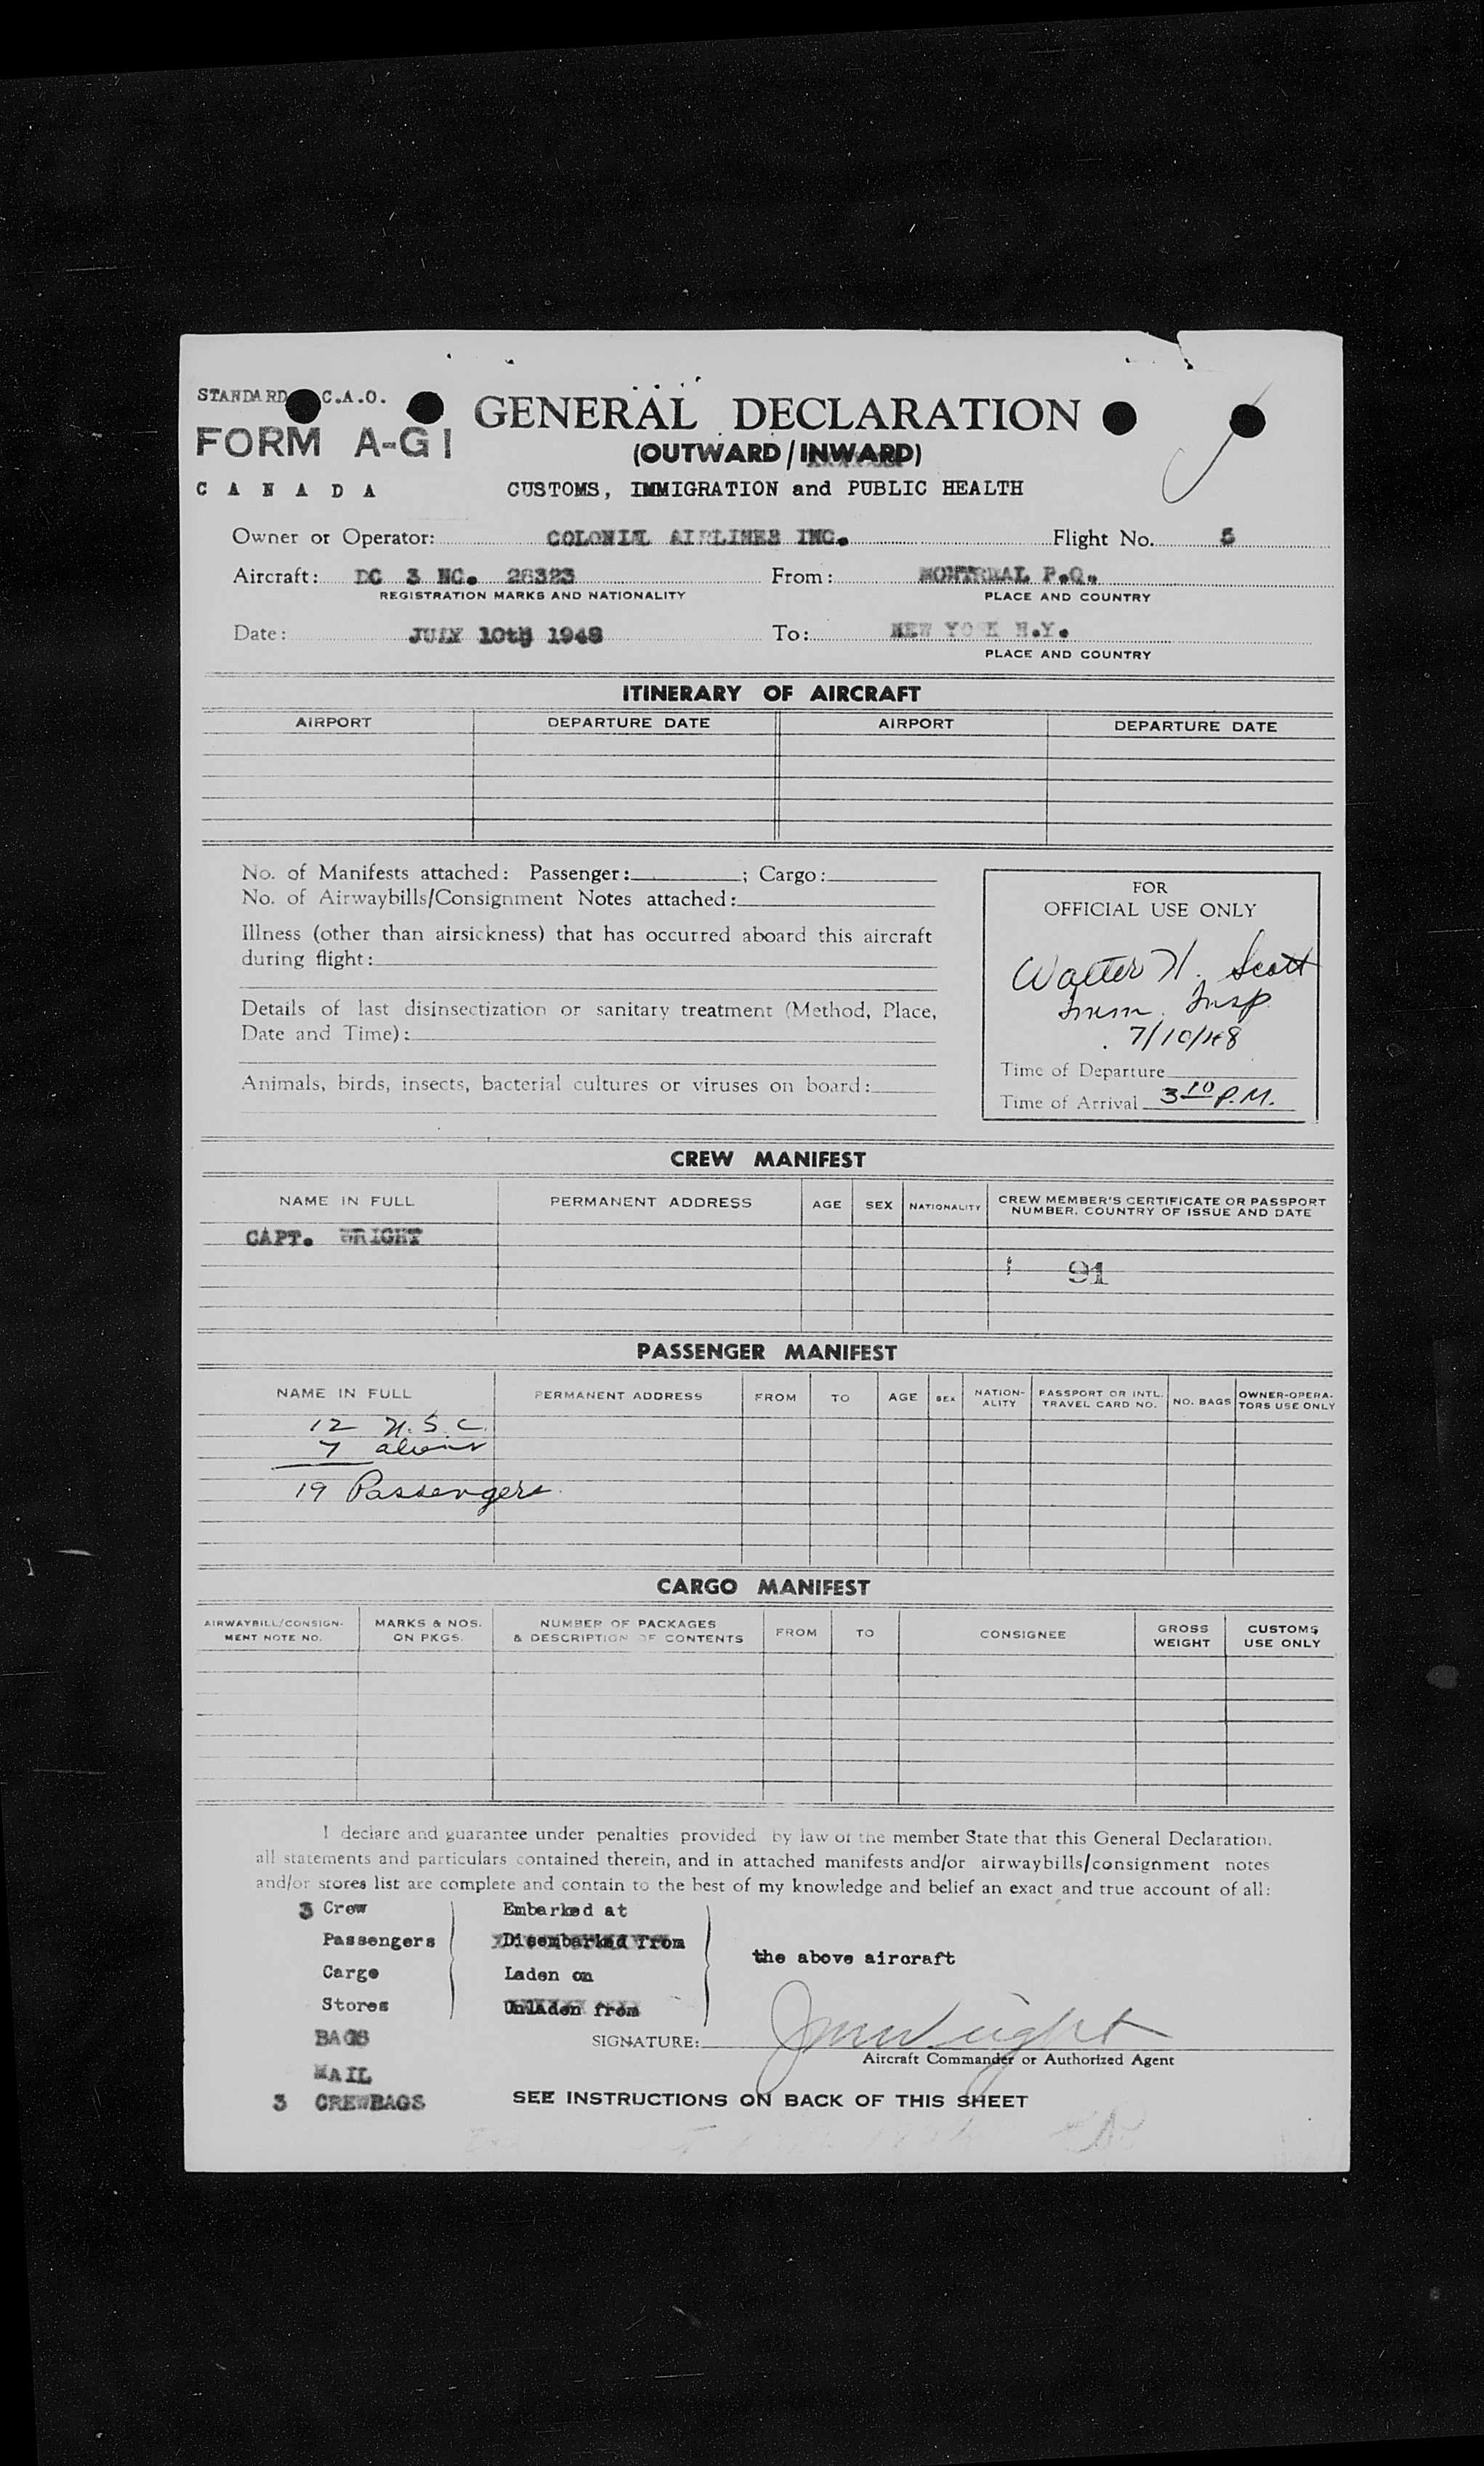 STANDARD C.A.O.
FORM A-G1
GENERAL DECLARATION
(OUTWARD/INWARD)
C A N A D A
CUSTOMS, IMMIGRATION and PUBLIC HEALTH
Owner or Operator: COLONIAL AIRLINES INC. Flight No. 5
Aircraft: DC 3 NC. 28323 From: MONTREAL P.Q.
REGISTRATION MARKS AND NATIONALITY PLACE AND COUNTRY
Date: JULY 10th 1948 To: NEW YORK N.Y.
PLACE AND COUNTRY
ITINERARY OF AIRCRAFT
AIRPORT DEPARTURE DATE AIRPORT DEPARTURE DATE
No. of Manifests attached: Passenger: ; Cargo:
No. of Airwaybills/Consignment Notes attached:
Illness (other than airsickness) that has occurred aboard this aircraft
during flight:
Details of last disinsectization or sanitary treatment (Method, Place,
Date and Time):
Animals, birds, insects, bacterial cultures or viruses on board:
FOR
OFFICIAL USE ONLY
Walter H. Scott
Imm. Insp.
7/10/48
Time of Departure
Time of Arrival 3 10 P.M.
CREW MANIFEST
NAME IN FULL PERMANENT ADDRESS AGE SEX NATIONALITY CREW MEMBER'S CERTIFICATE OR PASSPORT NUMBER, COUNTRY OF ISSUE AND DATE
CAPT. WRIGHT
91
PASSENGER MANIFEST
NAME IN FULL PERMANENT ADDRESS FROM TO AGE SEX NATION-ALITY PASSPORT OR INTL. TRAVEL CARD NO. NO. BAGS OWNER-OPERA-TORS USE ONLY
12 U.S.C.
7 aliens
19 Passengers
CARGO MANIFEST
AIRWAYBILL/CONSIGN-MENT NOTE NO. MARKS & NOS. ON PKGS. NUMBER OF PACKAGES & DESCRIPTION OF CONTENTS FROM TO CONSIGNEE GROSS WEIGHT CUSTOMS USE ONLY
I declare and guarantee under penalties provided by law of the member State that this General Declaration,
all statements and particulars contained therein, and in attached manifests and/or airwaybills/consignment notes
and/or stores list are complete and contain to the best of my knowledge and belief an exact and true account of all:
3 Crew Embarked at
Passengers Disembarked from
the above aircraft
Cargo Laden on
Stores Unladen from
BAGS
SIGNATURE: JmWright
Aircraft Commander or Authorized Agent
MAIL
3 CREWBAGS
SEE INSTRUCTIONS ON BACK OF THIS SHEET